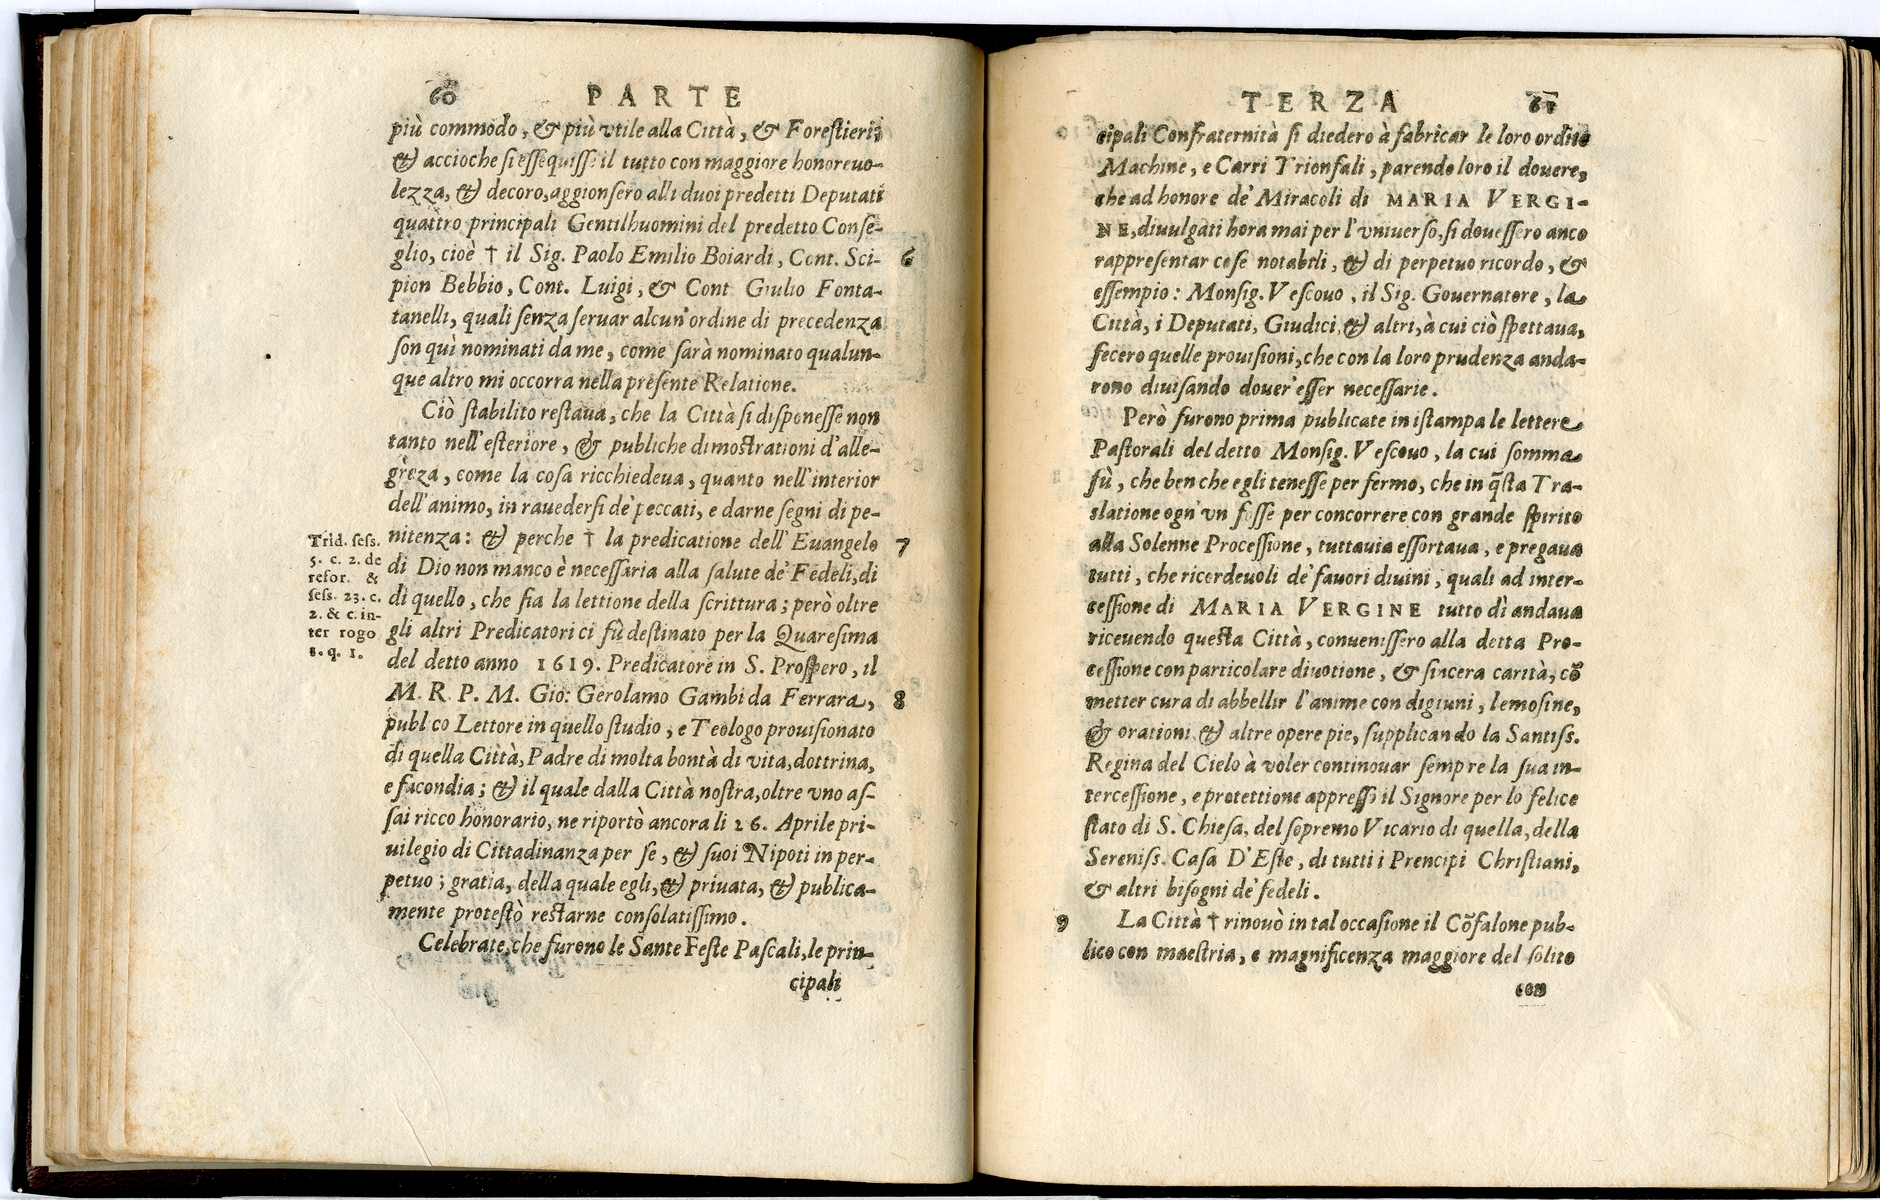 60 PARTE
più commodo, & più vtile alla Città, & Forestieri;
& accioche si essequisse il tutto con maggiore honoreuo-
lezza, & decoro, aggionsero alli duoi predetti Deputati
quattro principali Gentilhuomini del predetto Conse-
glio, cioè † il Sig. Paolo Emilio Boiardi, Cont. Sci-
6
pion Bebbio, Cont. Luigi, & Cont Giulio Fonta-
tanelli, quali senza seruar alcun' ordine di precedenza
son quì nominati da me, come sarà nominato qualun-
que altro mi occorra nella presente Relatione.
Ciò stabilito restaua, che la Città si disponesse non
tanto nell' esteriore, & publiche dimostrationi d'alle-
greza, come la cosa ricchiedeua, quanto nell' interior
dell' animo, in rauedersi de' peccati, e darne segni di pe-
nitenza: & perche † la predicatione dell' Euangelo
7
di Dio non manco è necessaria alla salute de' Fedeli, di
di quello, che sia la lettione della scrittura; però oltre
gli altri Predicatori ci fù destinato per la Quaresima
del detto anno 1619. Predicatore in S. Prospero, il
M. R. P. M. Gio: Gerolamo Gambi da Ferrara,
8
publico Lettore in quello studio, e Teologo prouisionato
di quella Città, Padre di molta bontà di vita, dottrina,
e facondia; & il quale dalla Città nostra, oltre vno as-
sai ricco honorario, ne riportò ancora li 26. Aprile pri-
uilegio di Cittadinanza per se, & suoi Nipoti in per-
petuo; gratia, della quale egli, & priuata, & publica-
mente protestò restarne consolatissimo.
Celebrate, che furono le Sante Feste Pascali, le prin-
cipali
Trid. sess.
5. c. 2. de
refor. &
sess. 23. c.
2. & c. in-
ter rogo
8. q. 1.
TERZA 61
cipali Confraternità si diedero à fabricar le loro ordite
Machine, e Carri Trionfali, parendo loro il douere,
che ad honore de' Miracoli di MARIA VERGI-
NE, diuulgati hora mai per l'vniuerso, si douessero anco
rappresentar cose notabili, & di perpetuo ricordo, &
essempio: Monsig. Vescouo, il Sig. Gouernatore, la
Città, i Deputati, Giudici, & altri, à cui ciò spettaua,
fecero quelle prouisioni, che con la loro prudenza anda-
rono diuisando douer' esser necessarie.
Però furono prima publicate in istampa le lettere
Pastorali del detto Monsig. Vescouo, la cui somma
fù, che ben che egli tenesse per fermo, che in q̃sta Tra-
slatione ogn' vn fosse per concorrere con grande spirito
alla Solenne Processione, tuttauia essortaua, e pregaua
tutti, che ricordeuoli de' fauori diuini, quali ad inter-
cessione di MARIA VERGINE tutto dì andaua
riceuendo questa Città, conuenissero alla detta Pro-
cessione con particolare diuotione, & sincera carità, cõ
metter cura di abbellir l'anime con digiuni, lemosine,
& orationi & altre opere pie, supplicando la Santiss.
Regina del Cielo à voler continouar sempre la sua in-
tercessione, e protettione appresso il Signore per lo felice
stato di S. Chiesa, del sopremo Vicario di quella, della
Sereniss. Casa D'Este, di tutti i Prencipi Christiani,
& altri bisogni de' fedeli.
9
La Città † rinouò in tal occasione il Cõfalone pub-
lico con maestria, e magnificenza maggiore del solito
con